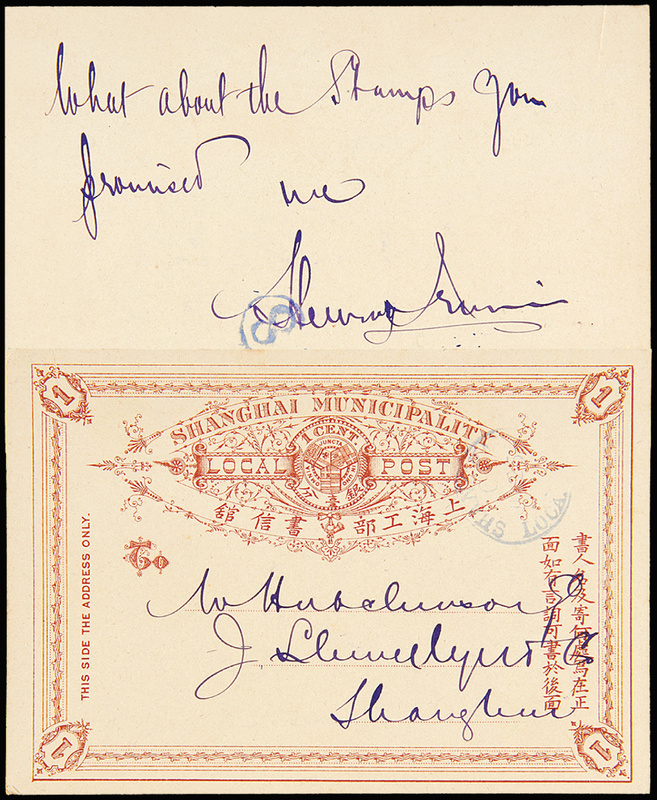 What about the Stamps you
promised me
8
1
1
SHANGHAI MUNICIPALITY
1 CENT
LOCAL POST
銀壹分
上海工部書信館
SH LOCAL
THIS SIDE THE ADDRESS ONLY.
To
W Hutchinson
J Llewellyn & Co
Shanghai
書人名及寄何處寫在正
面如有言詞可書於後面
1
1